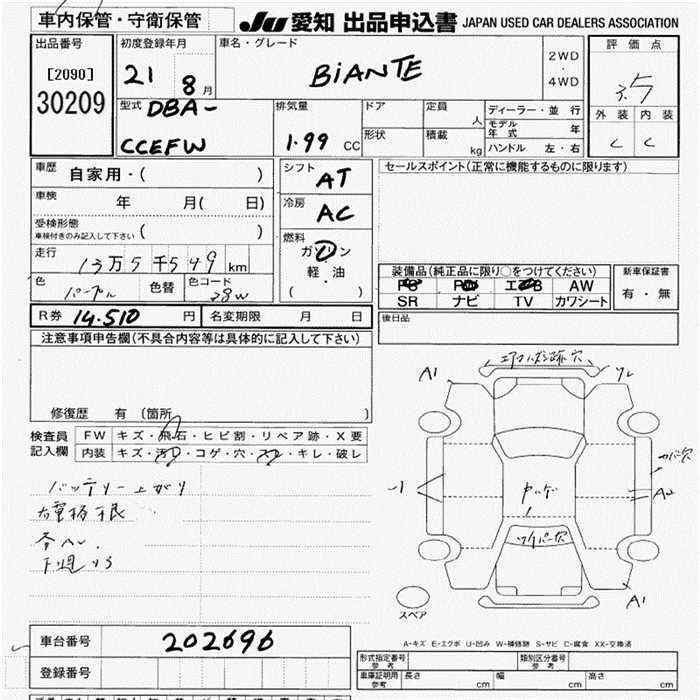 車内保管・守衛保管
JU 愛知 出品申込書 JAPAN USED CAR DEALERS ASSOCIATION
出品番号
[2090]
30209
初度登録年月
21 8月
車名・グレード
BIANTE
2WD
・
4WD
評価点
3.5
外装 内装
C C
型式 DBA-
CCEFW
排気量
1.99 CC
ドア
形状
定員 人
積載 kg
ディーラー・並行
モデル年式 年
ハンドル 左・右
車歴 自家用・( )
車検 年 月( 日)
受検形態
車検付きのみ記入して下さい ( )
走行 13万5千549 km
色 パープル 色替 色コード 28W
シフト AT
冷房 AC
燃料
ガソリン
軽・油
( )
セールスポイント(正常に機能するものに限ります)
装備品(純正品に限り○をつけてください)
PS PW エアB AW
SR ナビ TV カワシート
新車保証書
有・無
R券 14.510 円 名変期限 月 日
後日品
注意事項申告欄(不具合内容等は具体的に記入して下さい)
修復歴 有 (箇所 )
検査員
記入欄
FW キズ・飛石・ヒビ割・リペア跡・X要
内装 キズ・汚れ・コゲ・穴・スレ・キレ・破レ
バッテリー上がり
A1
A2
A1
スペア
A-キズ E-エクボ U-凹み W-補修跡 S-サビ C-腐食 XX-交換済
車台番号 202696
登録番号
形式指定番号 参考
類別区分番号 参考
車庫証明用 参考 長さ cm 幅 cm 高さ cm